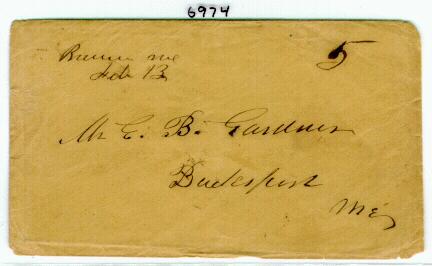 6974
me
5
Feb 13
Mr E. B. Gardner
Bucksport
Me